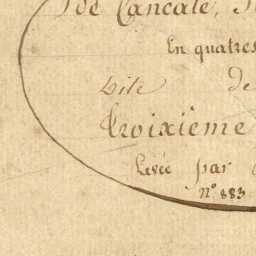 de Cancale,
En quatres
de
Troixième
Levée par
N° 883